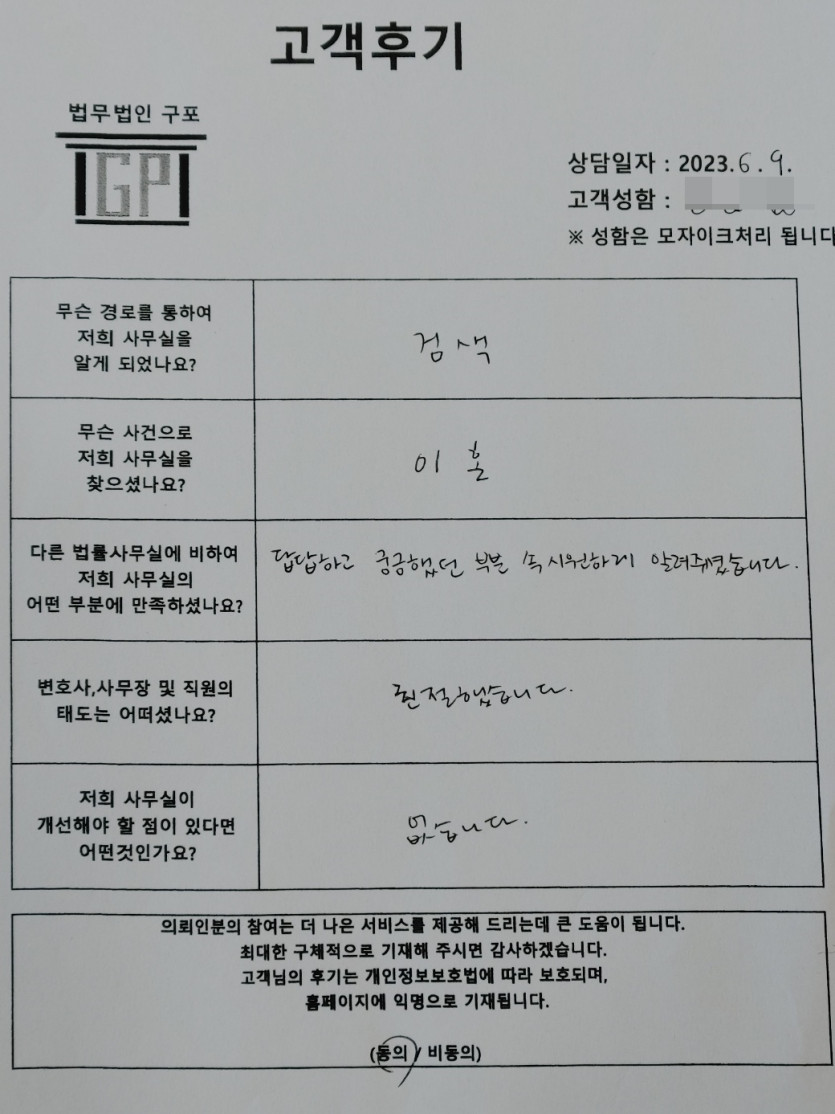 고객후기
법무법인 구포
GP
상담일자 : 2023.6.9.
고객성함 :
※ 성함은 모자이크처리 됩니다
무슨 경로를 통하여
저희 사무실을
알게 되었나요?
검색
무슨 사건으로
저희 사무실을
찾으셨나요?
이혼
다른 법률사무실에 비하여
저희 사무실의
어떤 부분에 만족하셨나요?
답답하고 궁금했던 부분 속시원하게 알려주셨습니다.
변호사,사무장 및 직원의
태도는 어떠셨나요?
친절했습니다.
저희 사무실이
개선해야 할 점이 있다면
어떤것인가요?
없습니다.
의뢰인분의 참여는 더 나은 서비스를 제공해 드리는데 큰 도움이 됩니다.
최대한 구체적으로 기재해 주시면 감사하겠습니다.
고객님의 후기는 개인정보보호법에 따라 보호되며,
홈페이지에 익명으로 기재됩니다.
(동의 / 비동의)